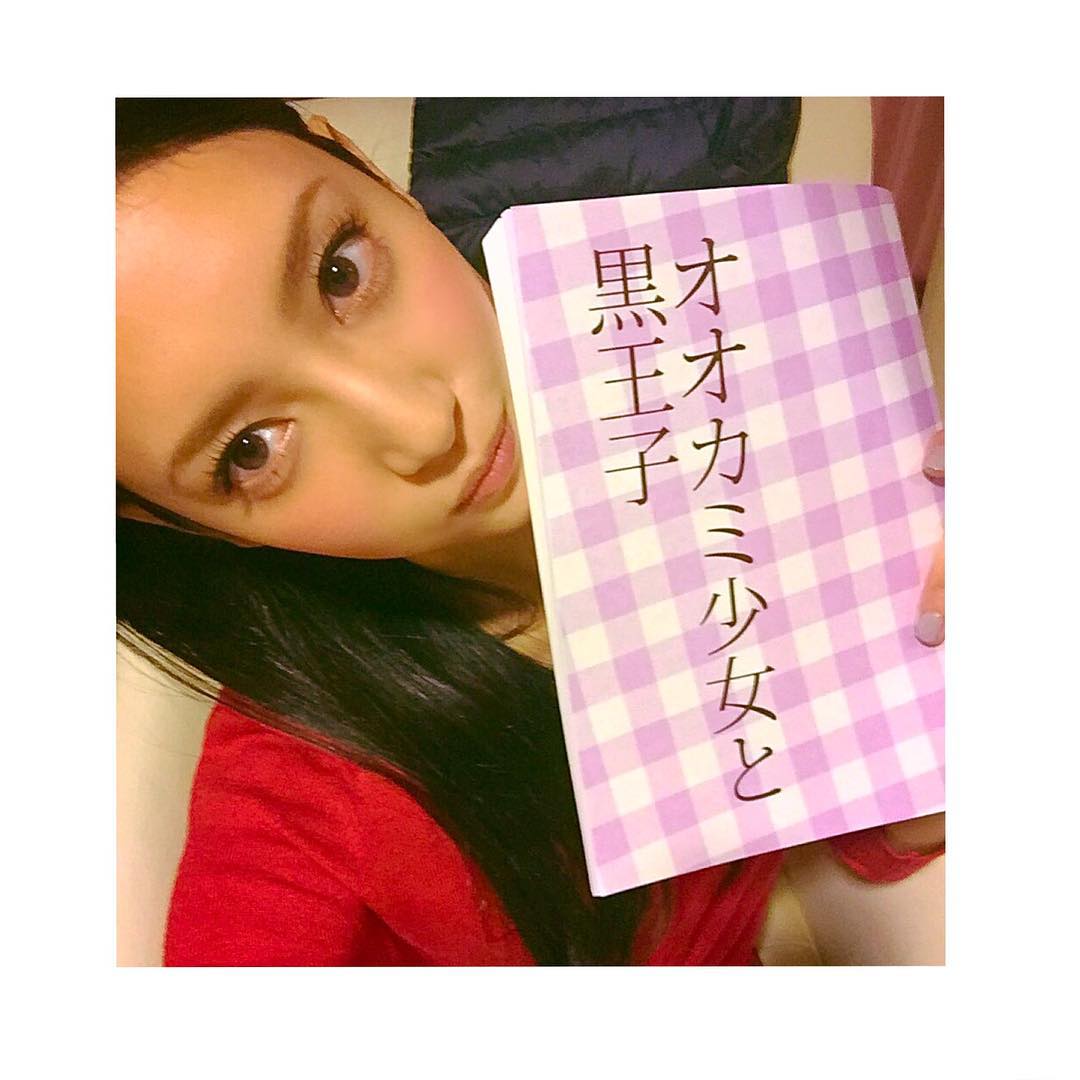 オオカミ少女と
黒王子